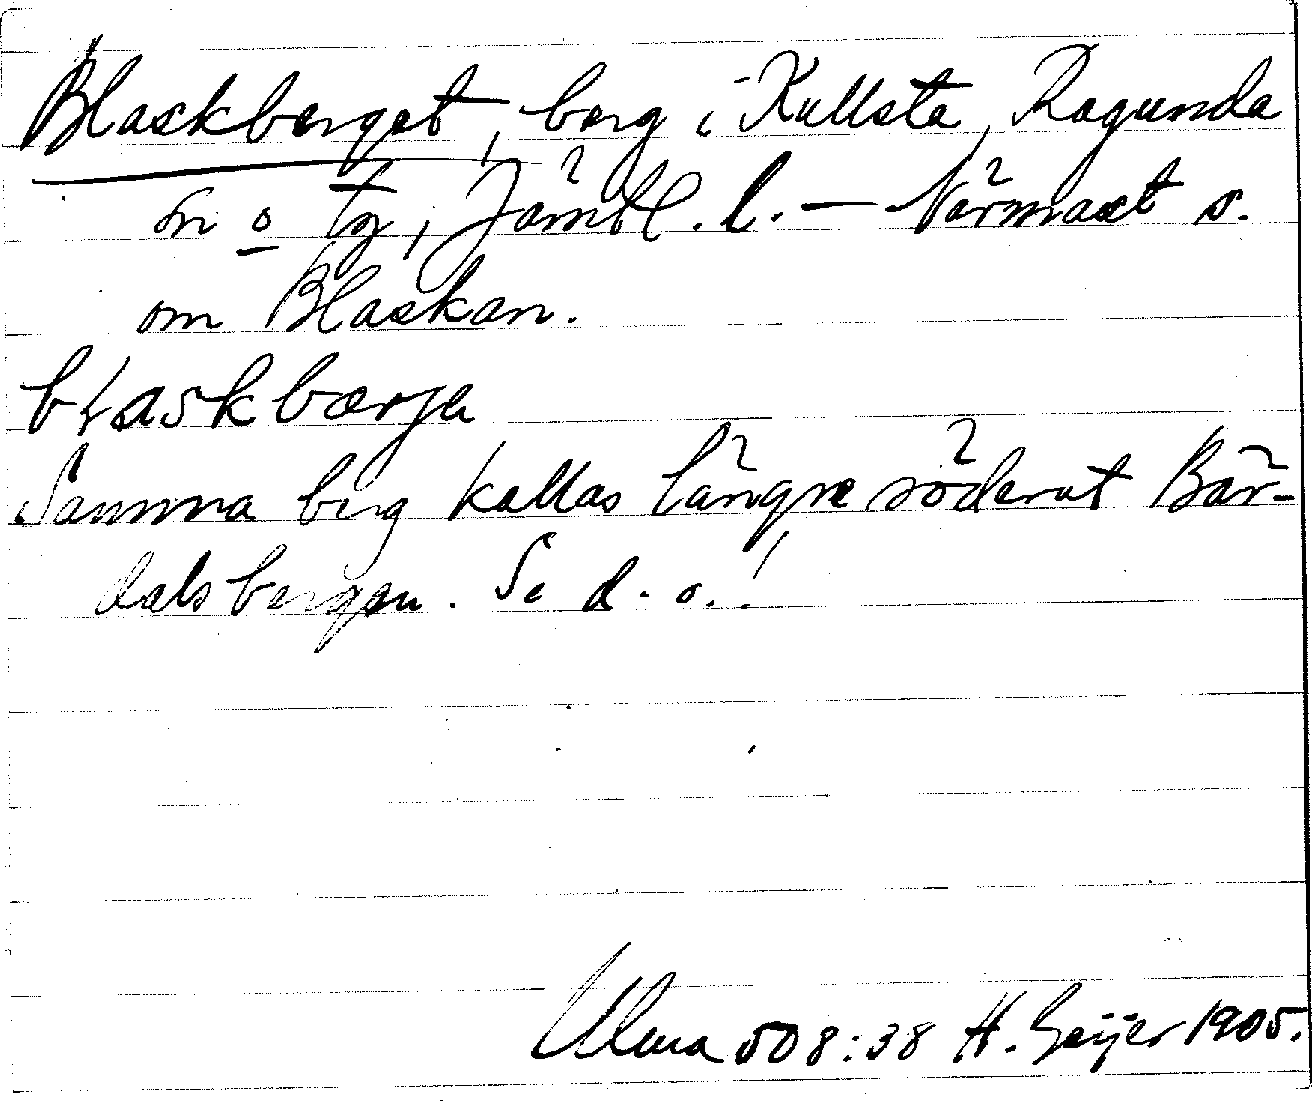 Blaskberget, berg i Kullsta, Ragunda
sn o tg, Jämtl. l. — Närmast s.
om Blaskan.
błaskbærje
Samma berg kallas längre söderut Bär-
dalsbergen. Se d. o.!
Ulma 508:38 H. Geijer 1905.